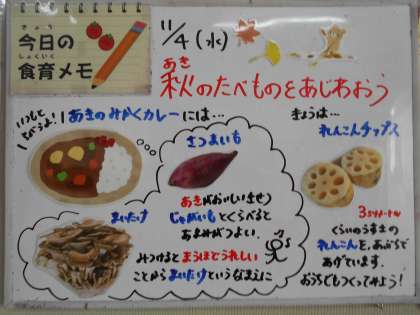 きょう
今日の
しょくいく
食育メモ
11/4(水)
あき
秋のたべものをあじわおう
いつもと
ちがうよ!
あきのみかくカレーには…
さつまいも
あきがおいしいきせつ
じゃがいもとくらべると
あまみがつよい。
まいたけ
みつけるとまうほどうれしい
ことからまいたけというなまえに
きょうは…
れんこんチップス
くらいのうすさの
れんこんを、あぶらで
あげています。
おうちでもつくってみよう!